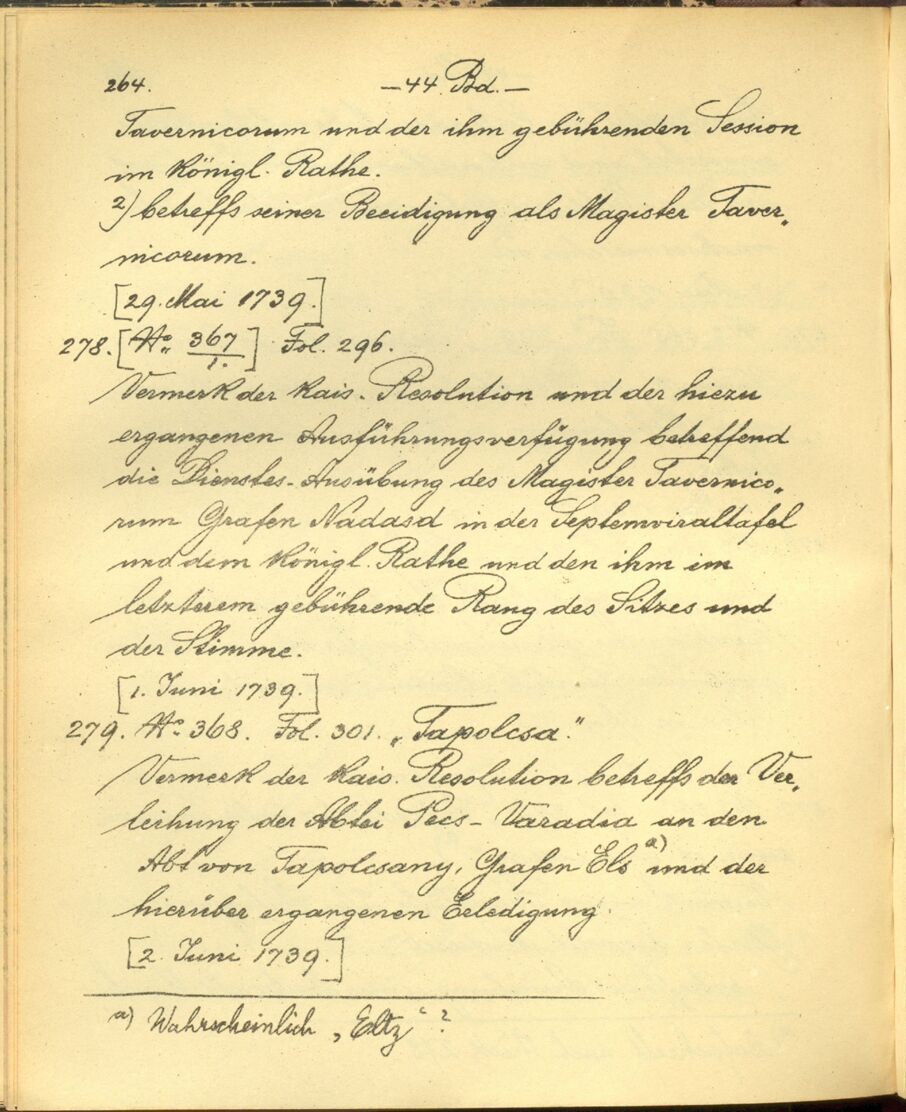 264.
— 44. Bd. —
Tavernicorum und der ihm gebührenden Session
im königl. Rathe.
2) betreffs seiner Beeidigung als Magister Taver„
nicorum.
[29. Mai 1739.]
278. [No. 367/1.] Fol. 296.
Vermerk der kais. Resolution und der hiezu
ergangenen Ausführungsverfügung betreffend
die Dienstes-Ausübung des Magister Tavernico„
rum Grafen Nadasd in der Septemviraltafel
und dem königl. Rathe und den ihm im
letzterem gebührende Rang des Sitzes und
der Stimme.
[1. Juni 1739.]
279. No. 368. Fol. 301. „Tapolcsa."
Vermerk der kais. Resolution betreffs der Ver„
leihung der Abtei Pecs-Varadia an den
Abt von Tapolcsany, Grafen Els a) und der
hierüber ergangenen Erledigung.
[2. Juni 1739.]
a) Wahrscheinlich „Eltz"?